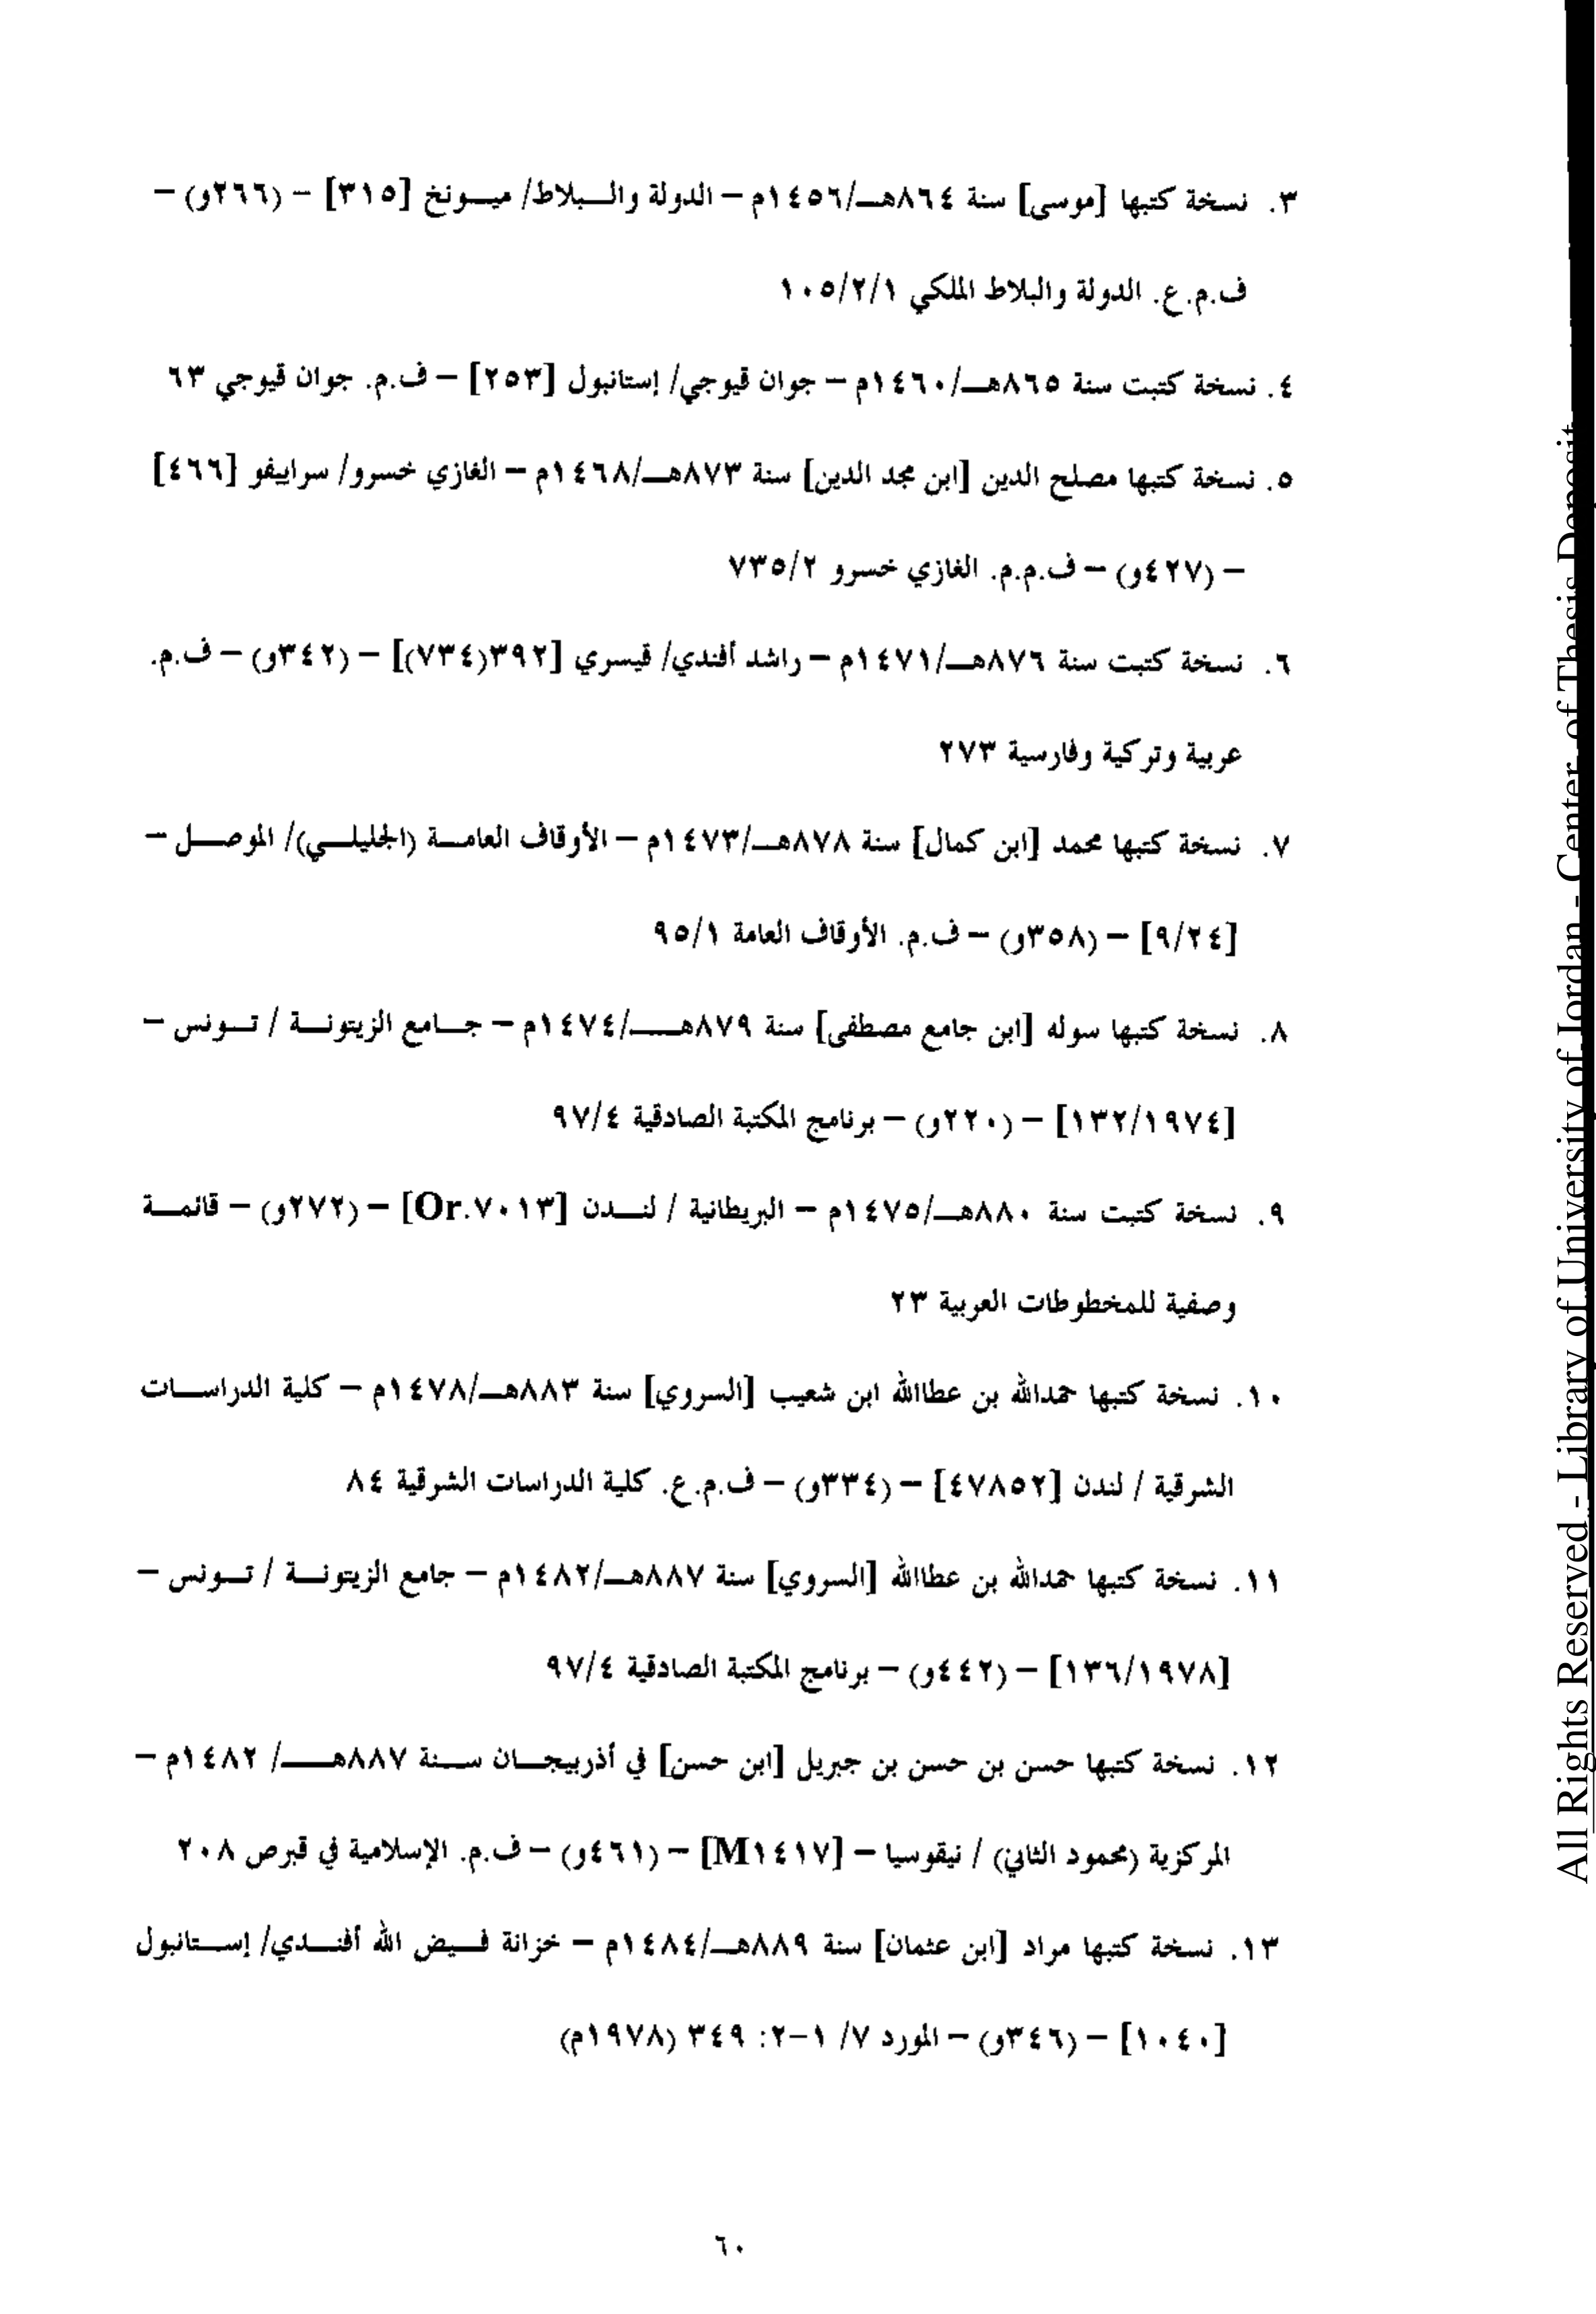 ٣. نسخة كتبها [موسى] سنة ٨٦٤هـ/١٤٥٦م – الدولة والبلاط/ ميونخ [٣١٥] – (٢٦٦و) –
ف.م.ع. الدولة والبلاط الملكي ١٠٥/٢/١
٤. نسخة كتبت سنة ٨٦٥هـ/١٤٦٠م – جوان قيوجي/ إستانبول [٢٥٣] – ف.م. جوان قيوجي ٦٣
٥. نسخة كتبها مصلح الدين [ابن مجد الدين] سنة ٨٧٣هـ/١٤٦٨م – الغازي خسرو/ سراييفو [٤٦٦]
– (٤٢٧و) – ف.م.م. الغازي خسرو ٧٣٥/٢
٦. نسخة كتبت سنة ٨٧٦هـ/١٤٧١م – راشد أفندي/ قيسري [٣٩٢(٧٣٤)] – (٣٤٢و) – ف.م.
عربية وتركية وفارسية ٢٧٣
٧. نسخة كتبها محمد [ابن كمال] سنة ٨٧٨هـ/١٤٧٣م – الأوقاف العامة (الجليلي)/ الموصل –
[٩/٢٤] – (٣٥٨و) – ف.م. الأوقاف العامة ٩٥/١
٨. نسخة كتبها سوله [ابن جامع مصطفى] سنة ٨٧٩هـ/١٤٧٤م – جامع الزيتونة / تونس –
[١٣٢/١٩٧٤] – (٢٢٠و) – برنامج المكتبة الصادقية ٩٧/٤
٩. نسخة كتبت سنة ٨٨٠هـ/١٤٧٥م – البريطانية / لندن [Or.٧٠١٣] – (٢٧٢و) – قائمة
وصفية للمخطوطات العربية ٢٣
١٠. نسخة كتبها حمدالله بن عطاالله ابن شعيب [السروي] سنة ٨٨٣هـ/١٤٧٨م – كلية الدراسات
الشرقية / لندن [٤٧٨٥٢] – (٣٣٤و) – ف.م.ع. كلية الدراسات الشرقية ٨٤
١١. نسخة كتبها حمدالله بن عطاالله [السروي] سنة ٨٨٧هـ/١٤٨٢م – جامع الزيتونة / تونس –
[١٣٦/١٩٧٨] – (٤٤٢و) – برنامج المكتبة الصادقية ٩٧/٤
١٢. نسخة كتبها حسن بن حسن بن جبريل [ابن حسن] في أذربيجان سنة ٨٨٧هـ/ ١٤٨٢م –
المركزية (محمود الثاني) / نيقوسيا – [M١٤١٧] – (٤٦١و) – ف.م. الإسلامية في قبرص ٢٠٨
١٣. نسخة كتبها مراد [ابن عثمان] سنة ٨٨٩هـ/١٤٨٤م – خزانة فيض الله أفندي/ إستانبول
[١٠٤٠] – (٣٤٦و) – المورد ٧/ ١–٢: ٣٤٩ (١٩٧٨م)
٦٠
All Rights Reserved - Library of University of Jordan - Center of Thesis Deposit